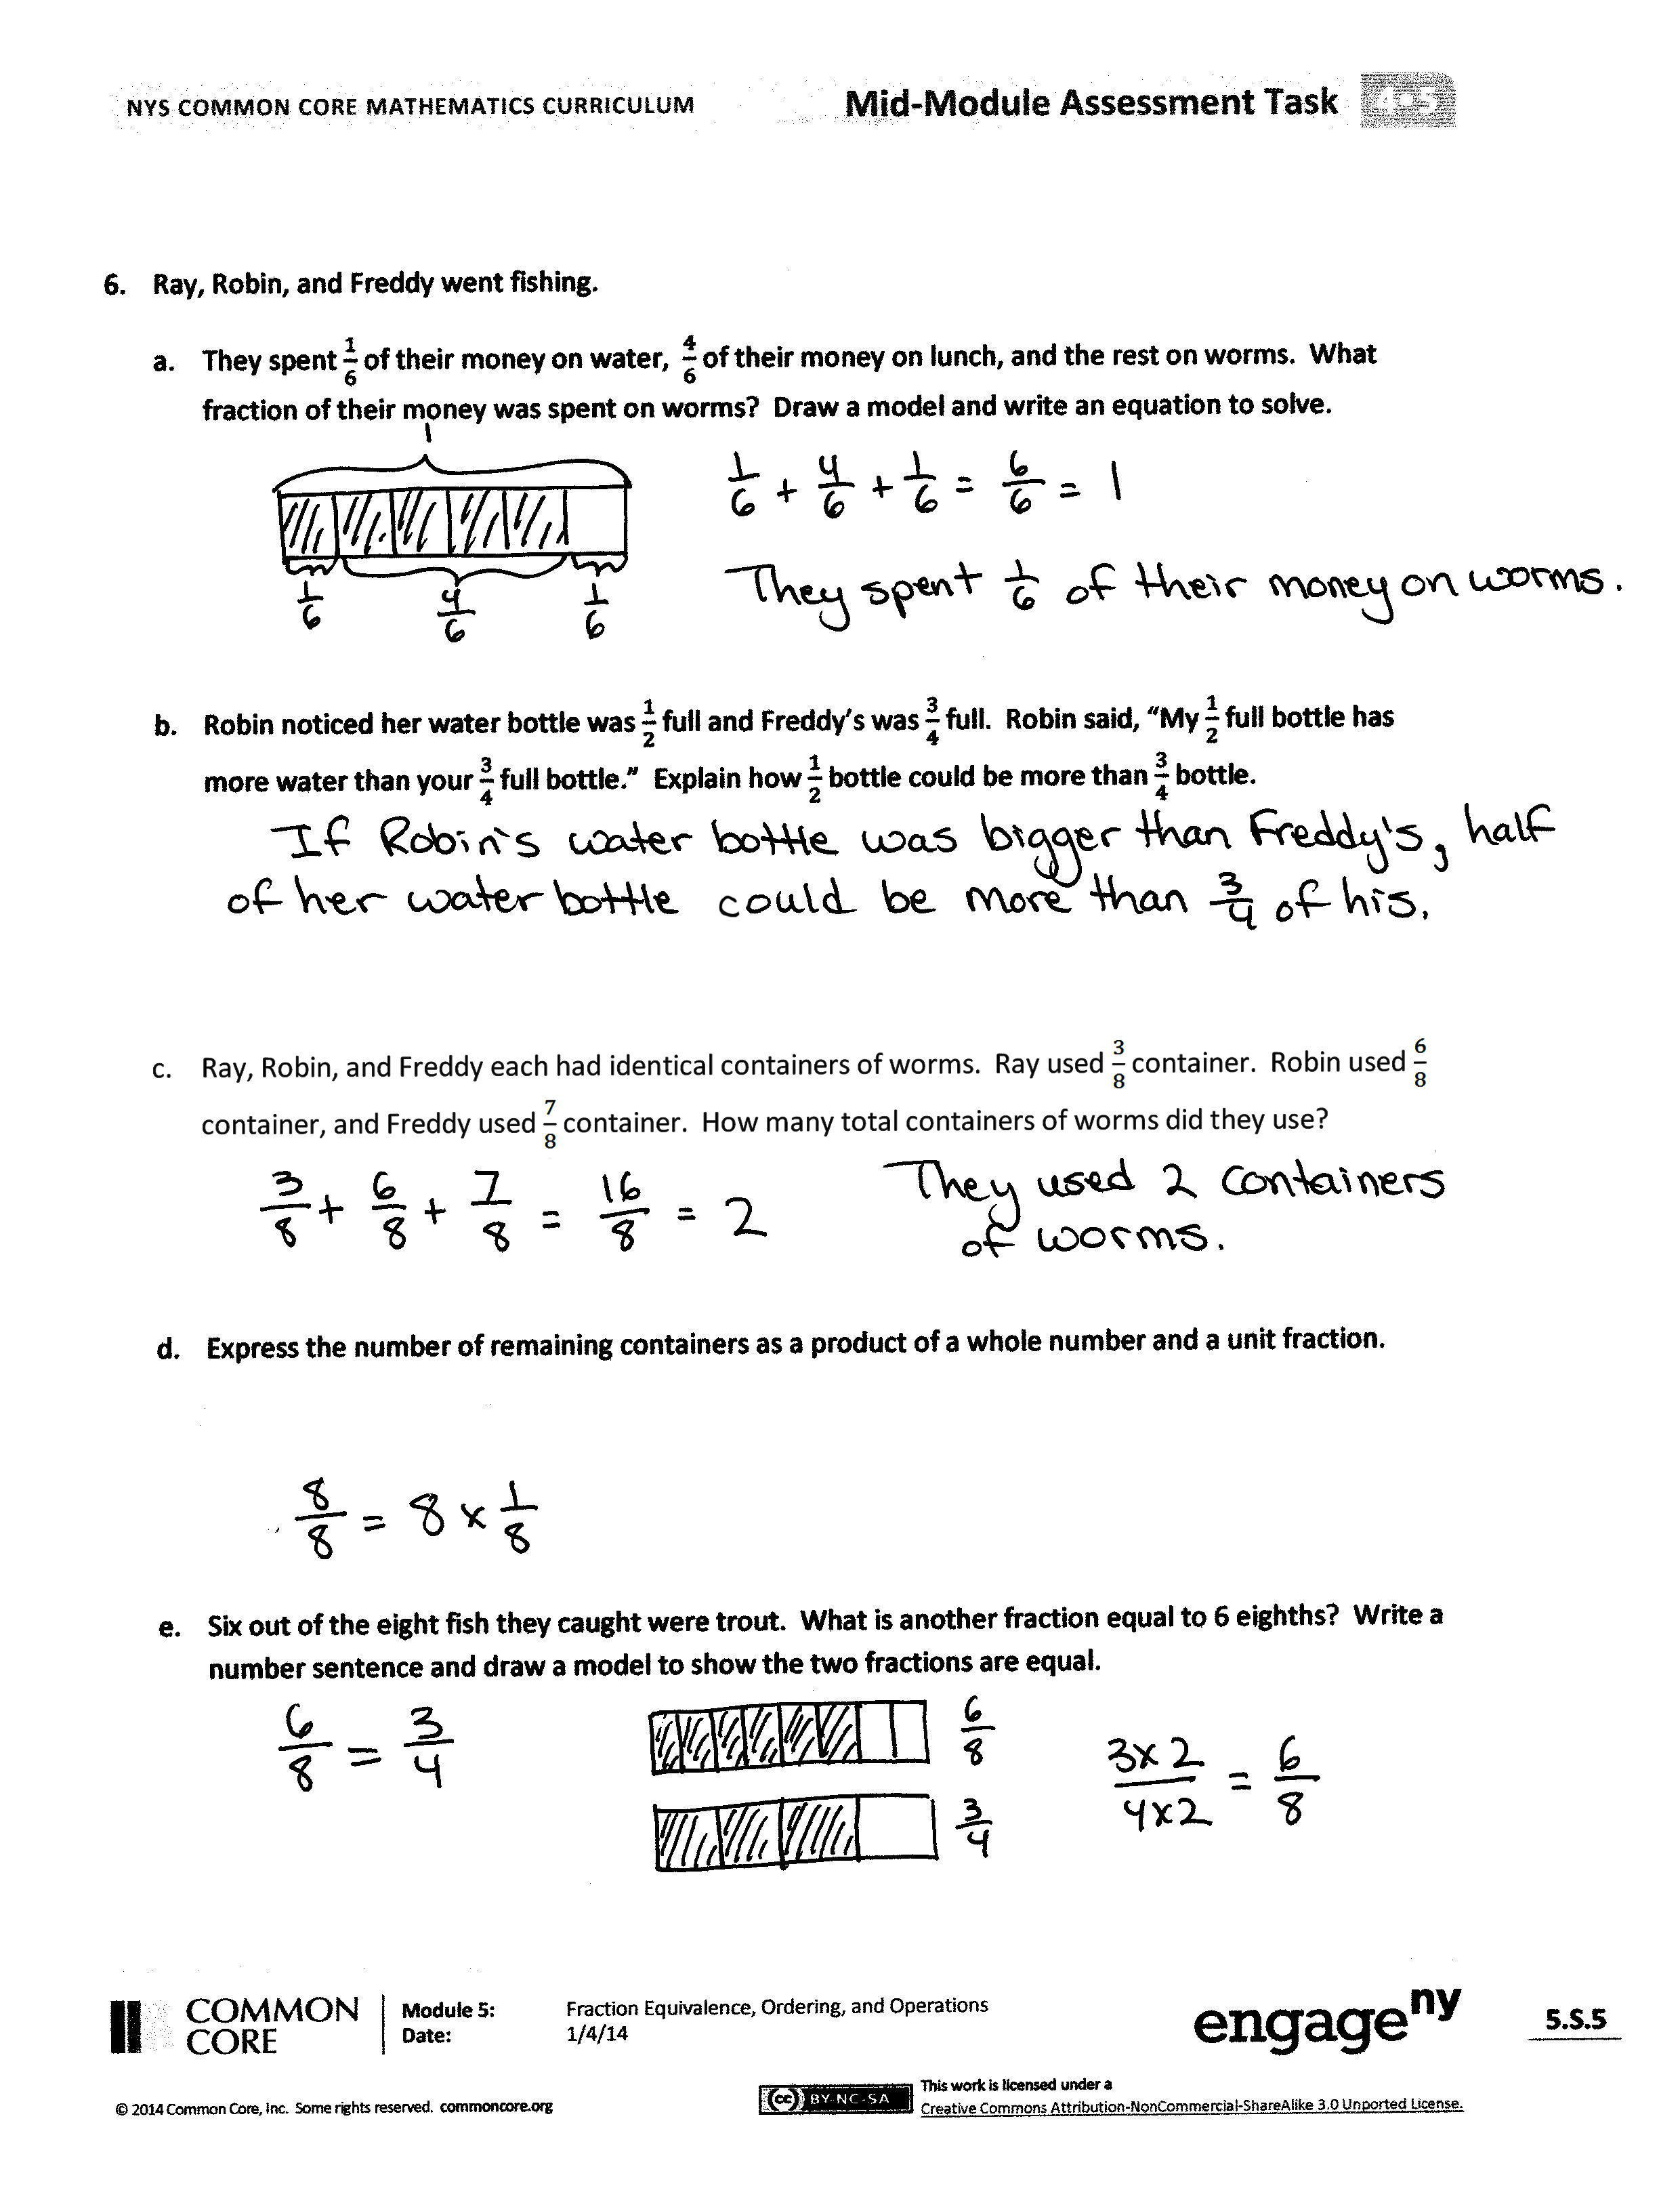 NYS COMMON CORE MATHEMATICS CURRICULUM
Mid-Module Assessment Task 4•5
6. Ray, Robin, and Freddy went fishing.
a. They spent 1/6 of their money on water, 4/6 of their money on lunch, and the rest on worms. What
fraction of their money was spent on worms? Draw a model and write an equation to solve.
1
1/6 + 4/6 + 1/6 = 6/6 = 1
1/6 4/6 1/6
They spent 1/6 of their money on worms.
b. Robin noticed her water bottle was 1/2 full and Freddy's was 3/4 full. Robin said, "My 1/2 full bottle has
more water than your 3/4 full bottle." Explain how 1/2 bottle could be more than 3/4 bottle.
If Robin's water bottle was bigger than Freddy's, half
of her water bottle could be more than 3/4 of his.
c. Ray, Robin, and Freddy each had identical containers of worms. Ray used 3/8 container. Robin used 6/8
container, and Freddy used 7/8 container. How many total containers of worms did they use?
3/8 + 6/8 + 7/8 = 16/8 = 2
They used 2 containers
of worms.
d. Express the number of remaining containers as a product of a whole number and a unit fraction.
8/8 = 8 x 1/8
e. Six out of the eight fish they caught were trout. What is another fraction equal to 6 eighths? Write a
number sentence and draw a model to show the two fractions are equal.
6/8 = 3/4
6/8
3/4
3x2/4x2 = 6/8
COMMON
CORE
Module 5: Fraction Equivalence, Ordering, and Operations
Date: 1/4/14
engage ny
5.S.5
© 2014 Common Core, Inc. Some rights reserved. commoncore.org
cc BY-NC-SA
This work is licensed under a
Creative Commons Attribution-NonCommercial-ShareAlike 3.0 Unported License.